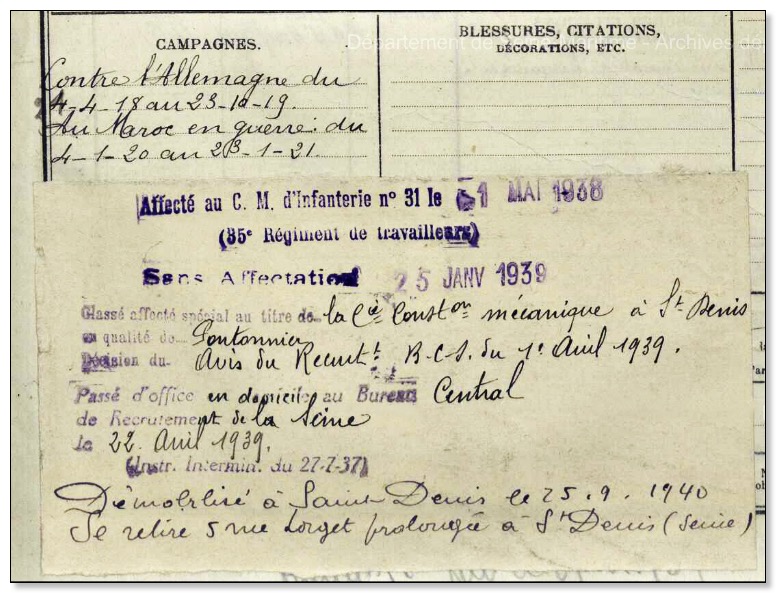 CAMPAGNES.
BLESSURES, CITATIONS,
DÉCORATIONS, ETC.
Département de Maritime - Archives de
Contre l'Allemagne du
4-4-18 au 23-10-19.
Au Maroc en guerre: du
4-1-20 au 23-1-21.
Affecté au C. M. d'Infanterie n° 31 le 1 MAI 1938
(35e Régiment de travailleurs)
Sans Affectation 25 JANV 1939
Classé affecté spécial au titre de la Cie Conston mécanique à St Denis
en qualité de Pontonnier
Décision du Avis du Recrutt B.C.S. du 1er Avril 1939.
Passé d'office en domicile au Bureau Central
de Recrutement de la Seine
le 22 Avril 1939.
(Instr. Intermin. du 27-7-37)
Démobilisé à Saint Denis le 25.9.1940
Se retire 5 rue prolongée à St Denis (Seine)